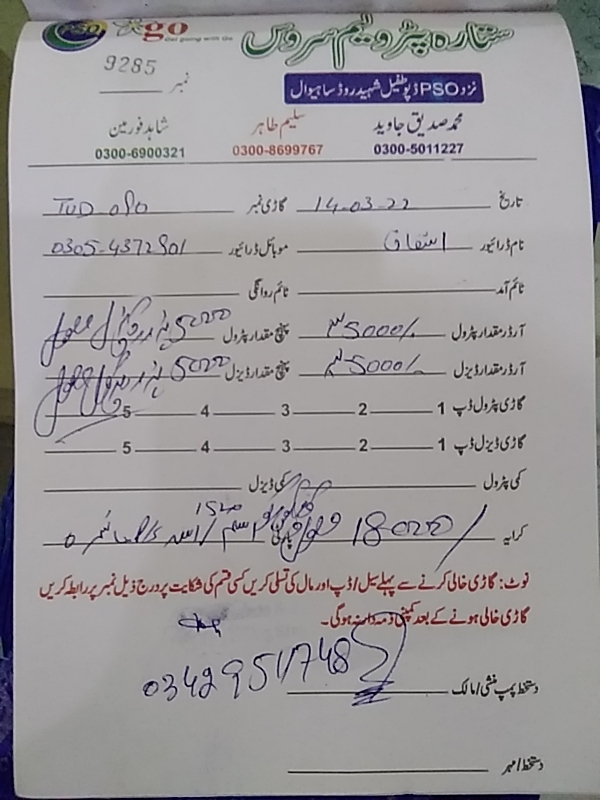 PSO go
ستارہ پٹرولیم سروس
نزد PSO ڈپو طفیل شہید روڈ ساہیوال
نمبر 9285
محمد صدیق جاوید سلیم طاہر شاہد فورمین
0300-5011227 0300-8699767 0300-6900321
تاریخ 14-03-22 گاڑی نمبر TUD 090
نام ڈرائیور اشفاق موبائل ڈرائیور 0305-4372901
ٹائم آمد ٹائم روانگی
آرڈر مقدار پٹرول 5000/- پہنچ مقدار پٹرول 5000
آرڈر مقدار ڈیزل 5000/- پہنچ مقدار ڈیزل 5000
گاڑی پٹرول ڈپ 1 2 3 4 5
گاڑی ڈیزل ڈپ 1 2 3 4 5
کمی پٹرول کمی ڈیزل
کرایہ 18000/
نوٹ: گاڑی خالی کرنے سے پہلے سیل/ڈپ اور مال کی تسلی کریں کسی قسم کی شکایت پر درج ذیل نمبر پر رابطہ کریں
گاڑی خالی ہونے کے بعد کمپنی ذمہ دار نہ ہوگی۔
03429511748
دستخط پمپ منشی/مالک
دستخط/مہر